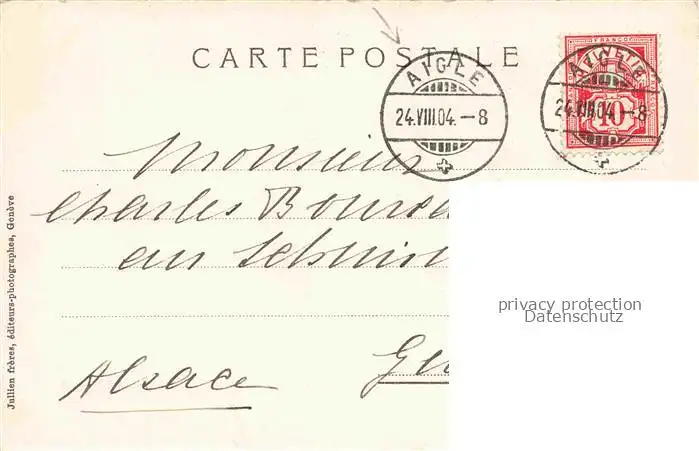 CARTE POSTALE
AIGLE
24.VIII.04.–8
FRANCO
HELVETIA
10
AIGLE
24.VIII.04.–8
Monsieur
Charles
Alsace
Jullien frères, éditeurs-photographes, Genève
privacy protection
Datenschutz